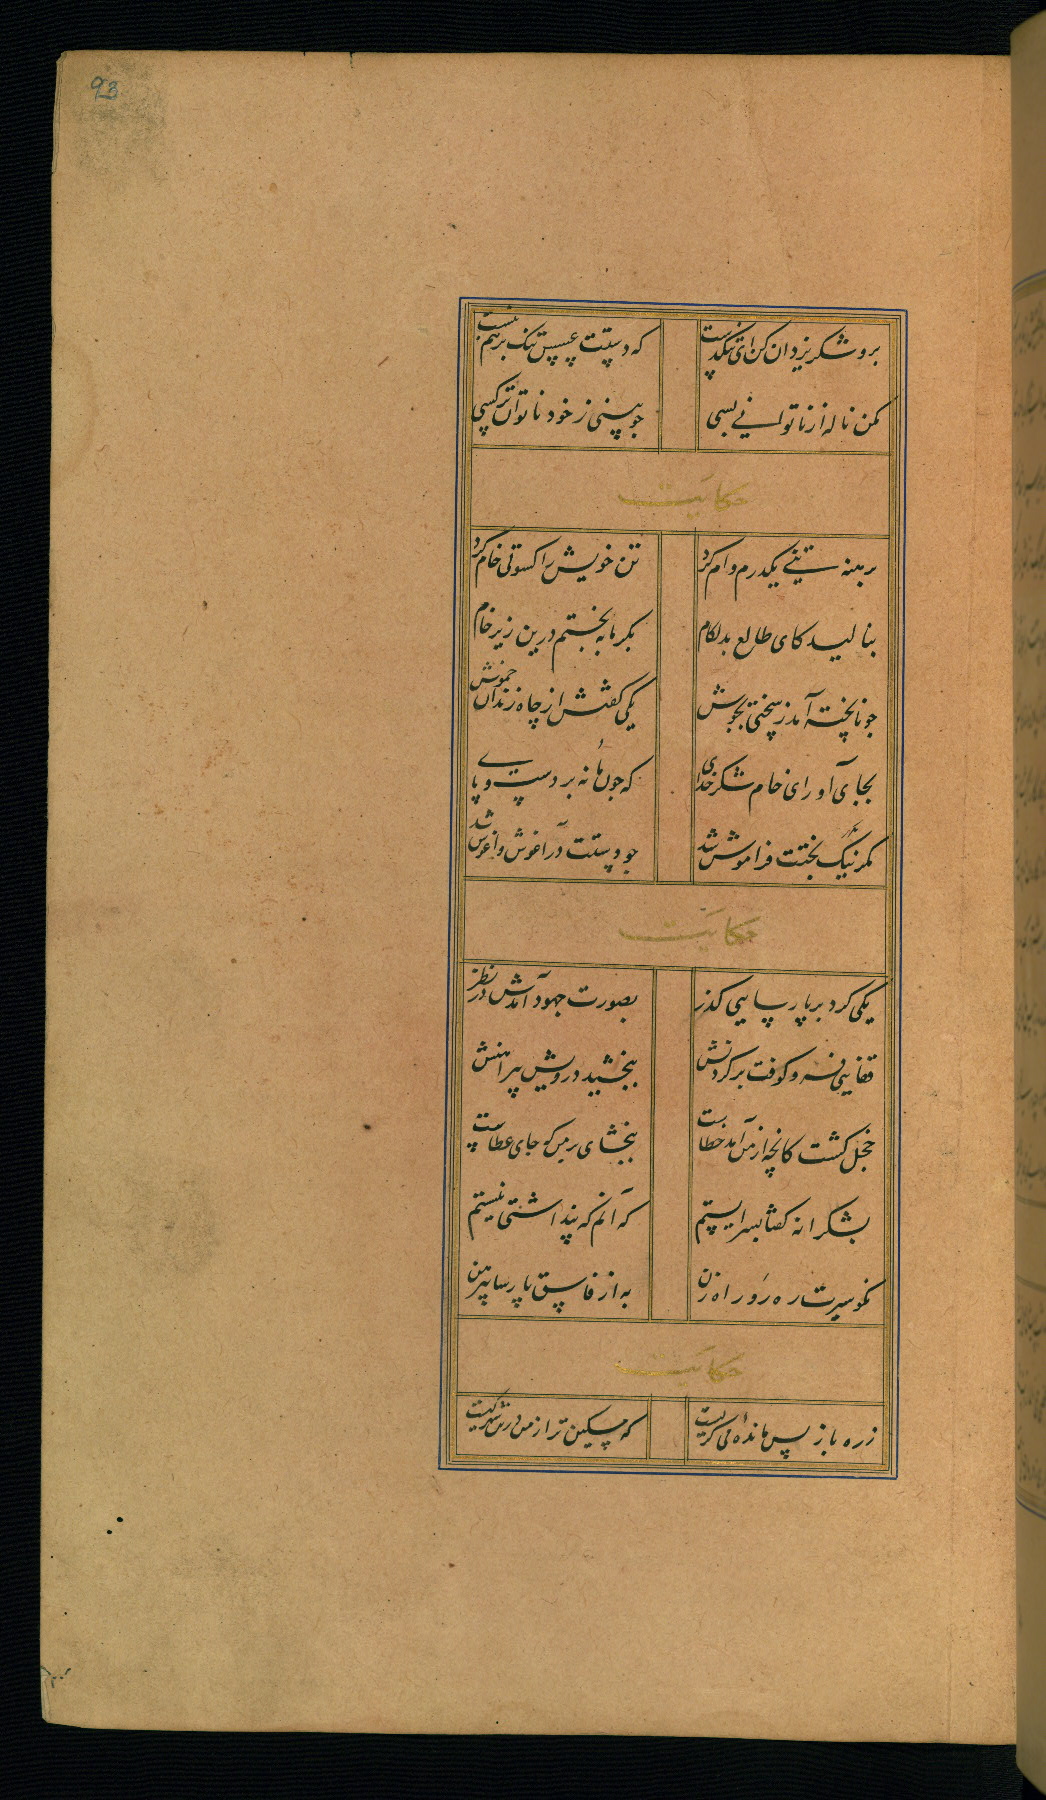 93
برو شکر یزدان کن ای تنکدست که دستت عسس تنک برهم نبست
مکن ناله از ناتوانی بسی جو بینی ز خود ناتوان‌تر کسی
حکایت
برهنه تنی یکدرم وام کرد تن خویش را کسوتی خام کرد
بنالید کای طالع بدلکام بکرما به بختم درین زیر خام
جو نابخته آمد ز سختی بجوش یکی کفتش از چاه زندان خموش
بجای آور ای خام شکر خدای که جون ما نه بر دست و پای
مکر نیک بختت فراموش شد جو دستت در آغوش و آغوش شد
حکایت
یکی کرد بر پارسایی کذر بصورت جهود آمدش در نظر
قفایی فرو کوفت بر کردنش ببخشید درویش پیراهنش
خجل کشت کانچه از من آمد خطاست ببخشای بر من که جای عطاست
بشکرانه کفتا بسر ایستم که آنم که پنداشتی نیستم
نکو سیرت ره رو راه زن به از فاسق پارسا پیرهن
حکایت
ز ره باز پس مانده‌ای می کریست که مسکین تر از من درین شهر کیست